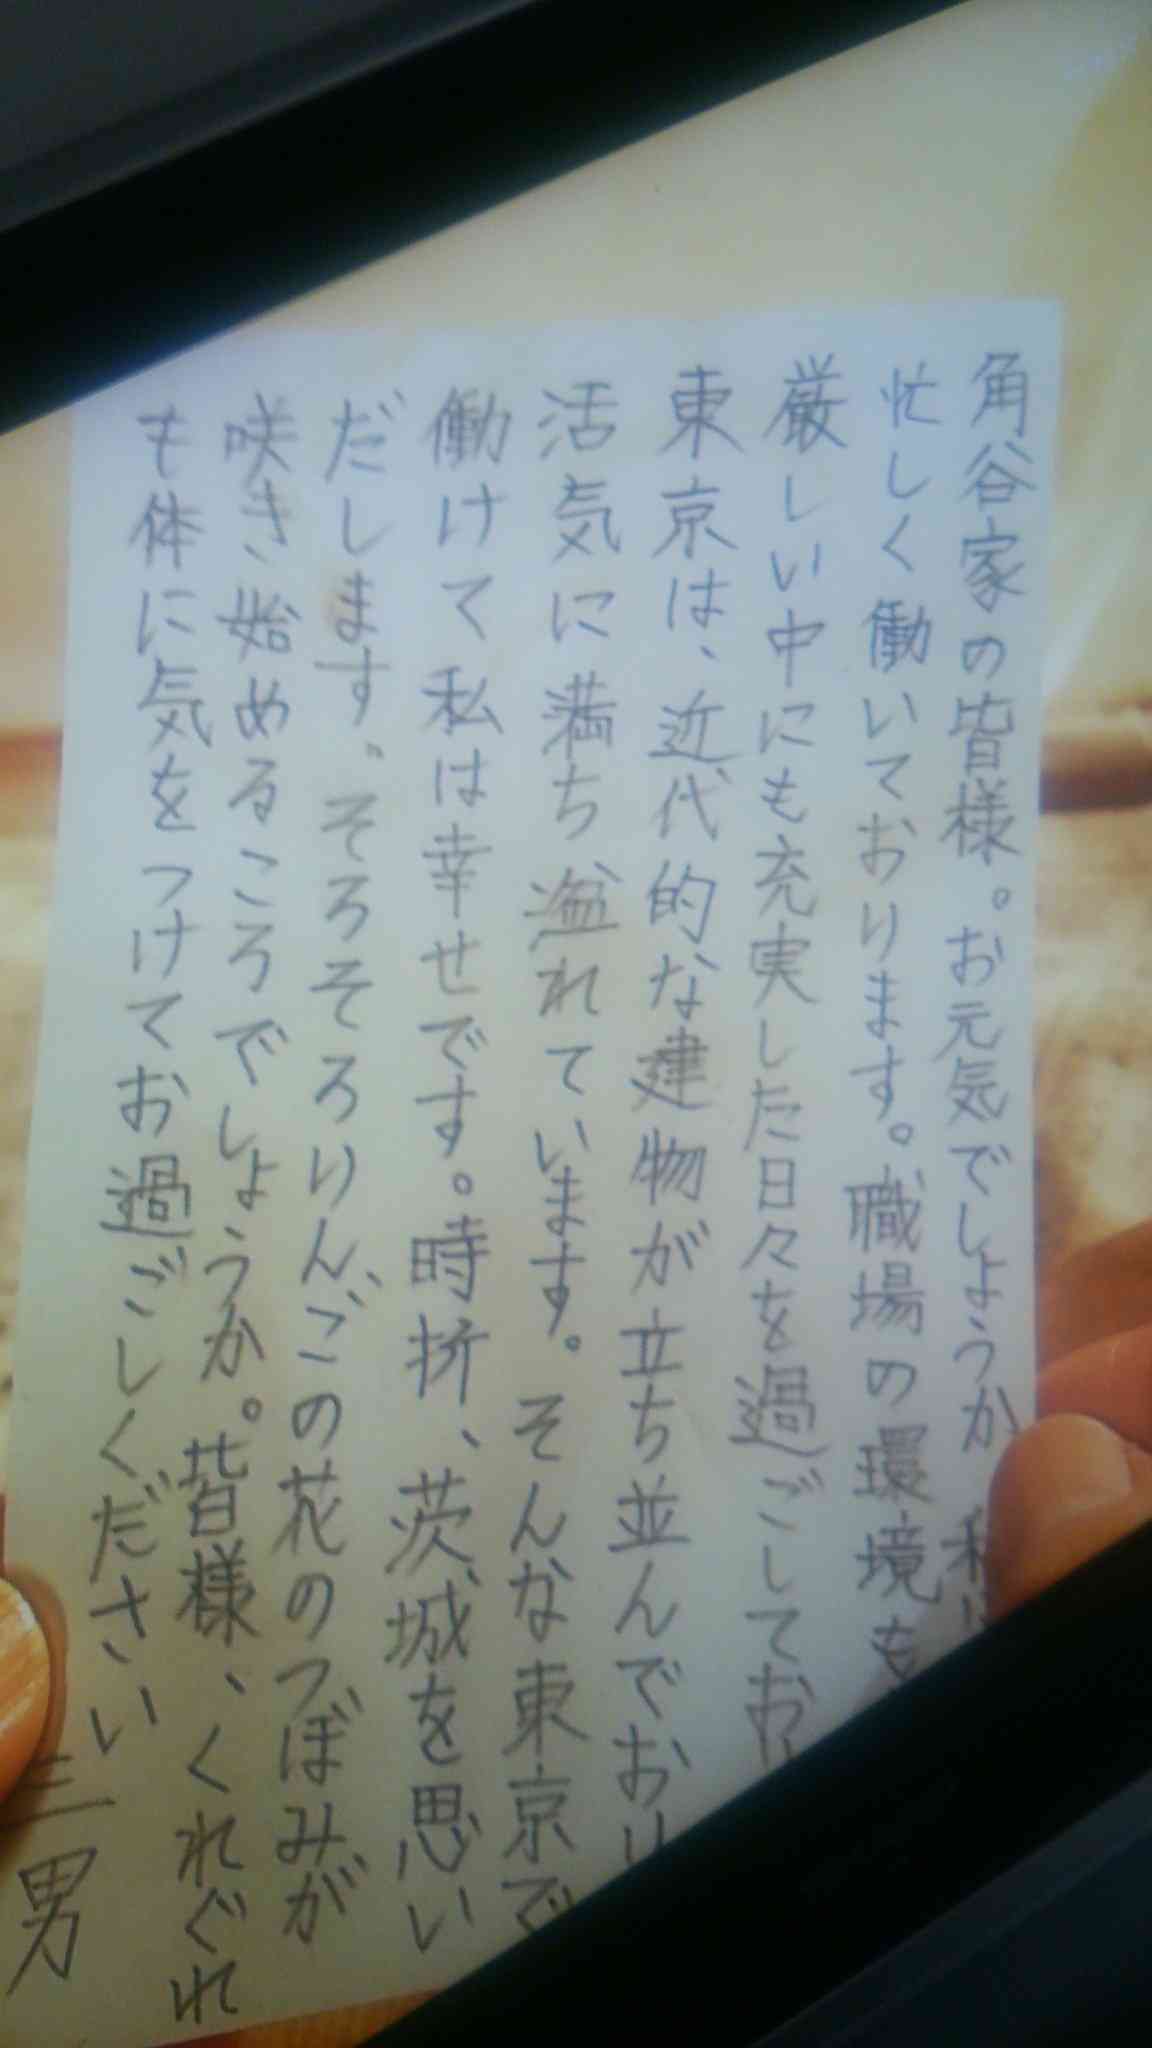 角谷家の皆様。お元気でしょうか 私は
忙しく働いております。職場の環境も
厳しい中にも充実した日々を過ごしてお
東京は、近代的な建物が立ち並んでおり
活気に満ち溢れています。そんな東京で
働けて私は幸せです。時折、茨城を思い
だします。そろそろりんごの花のつぼみが
咲き始めるころでしょうか。皆様、くれぐれ
も体に気をつけてお過ごしください
三男